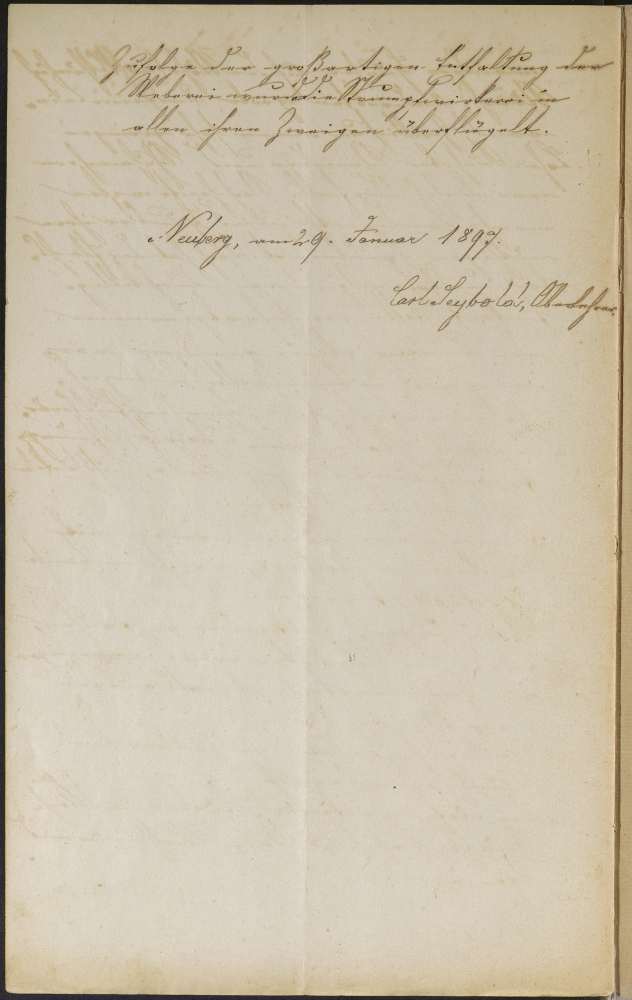 Zufolge der großartigen Entfaltung der
Weberei wurde die Strumpfwirkerei in
allen ihren Zweigen überflügelt.
Neuberg, am 29. Januar 1897.
Carl Seybold, Oberlehrer.